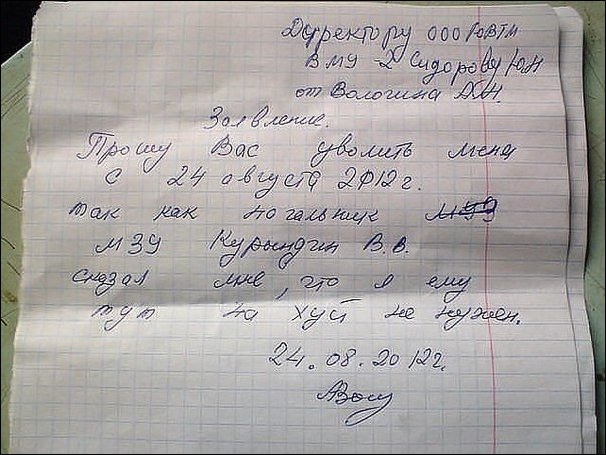 Директору ООО ЮВТМ
ВМУ-2 Сидорову Ю.Н
от Вологина А.Н.
Заявление.
Прошу Вас уволить меня
с 24 августа 2012г.
так как начальник
МЗУ Курындин В.В.
сказал мне, что я ему
тут на хуй не нужен.
24.08.2012г.